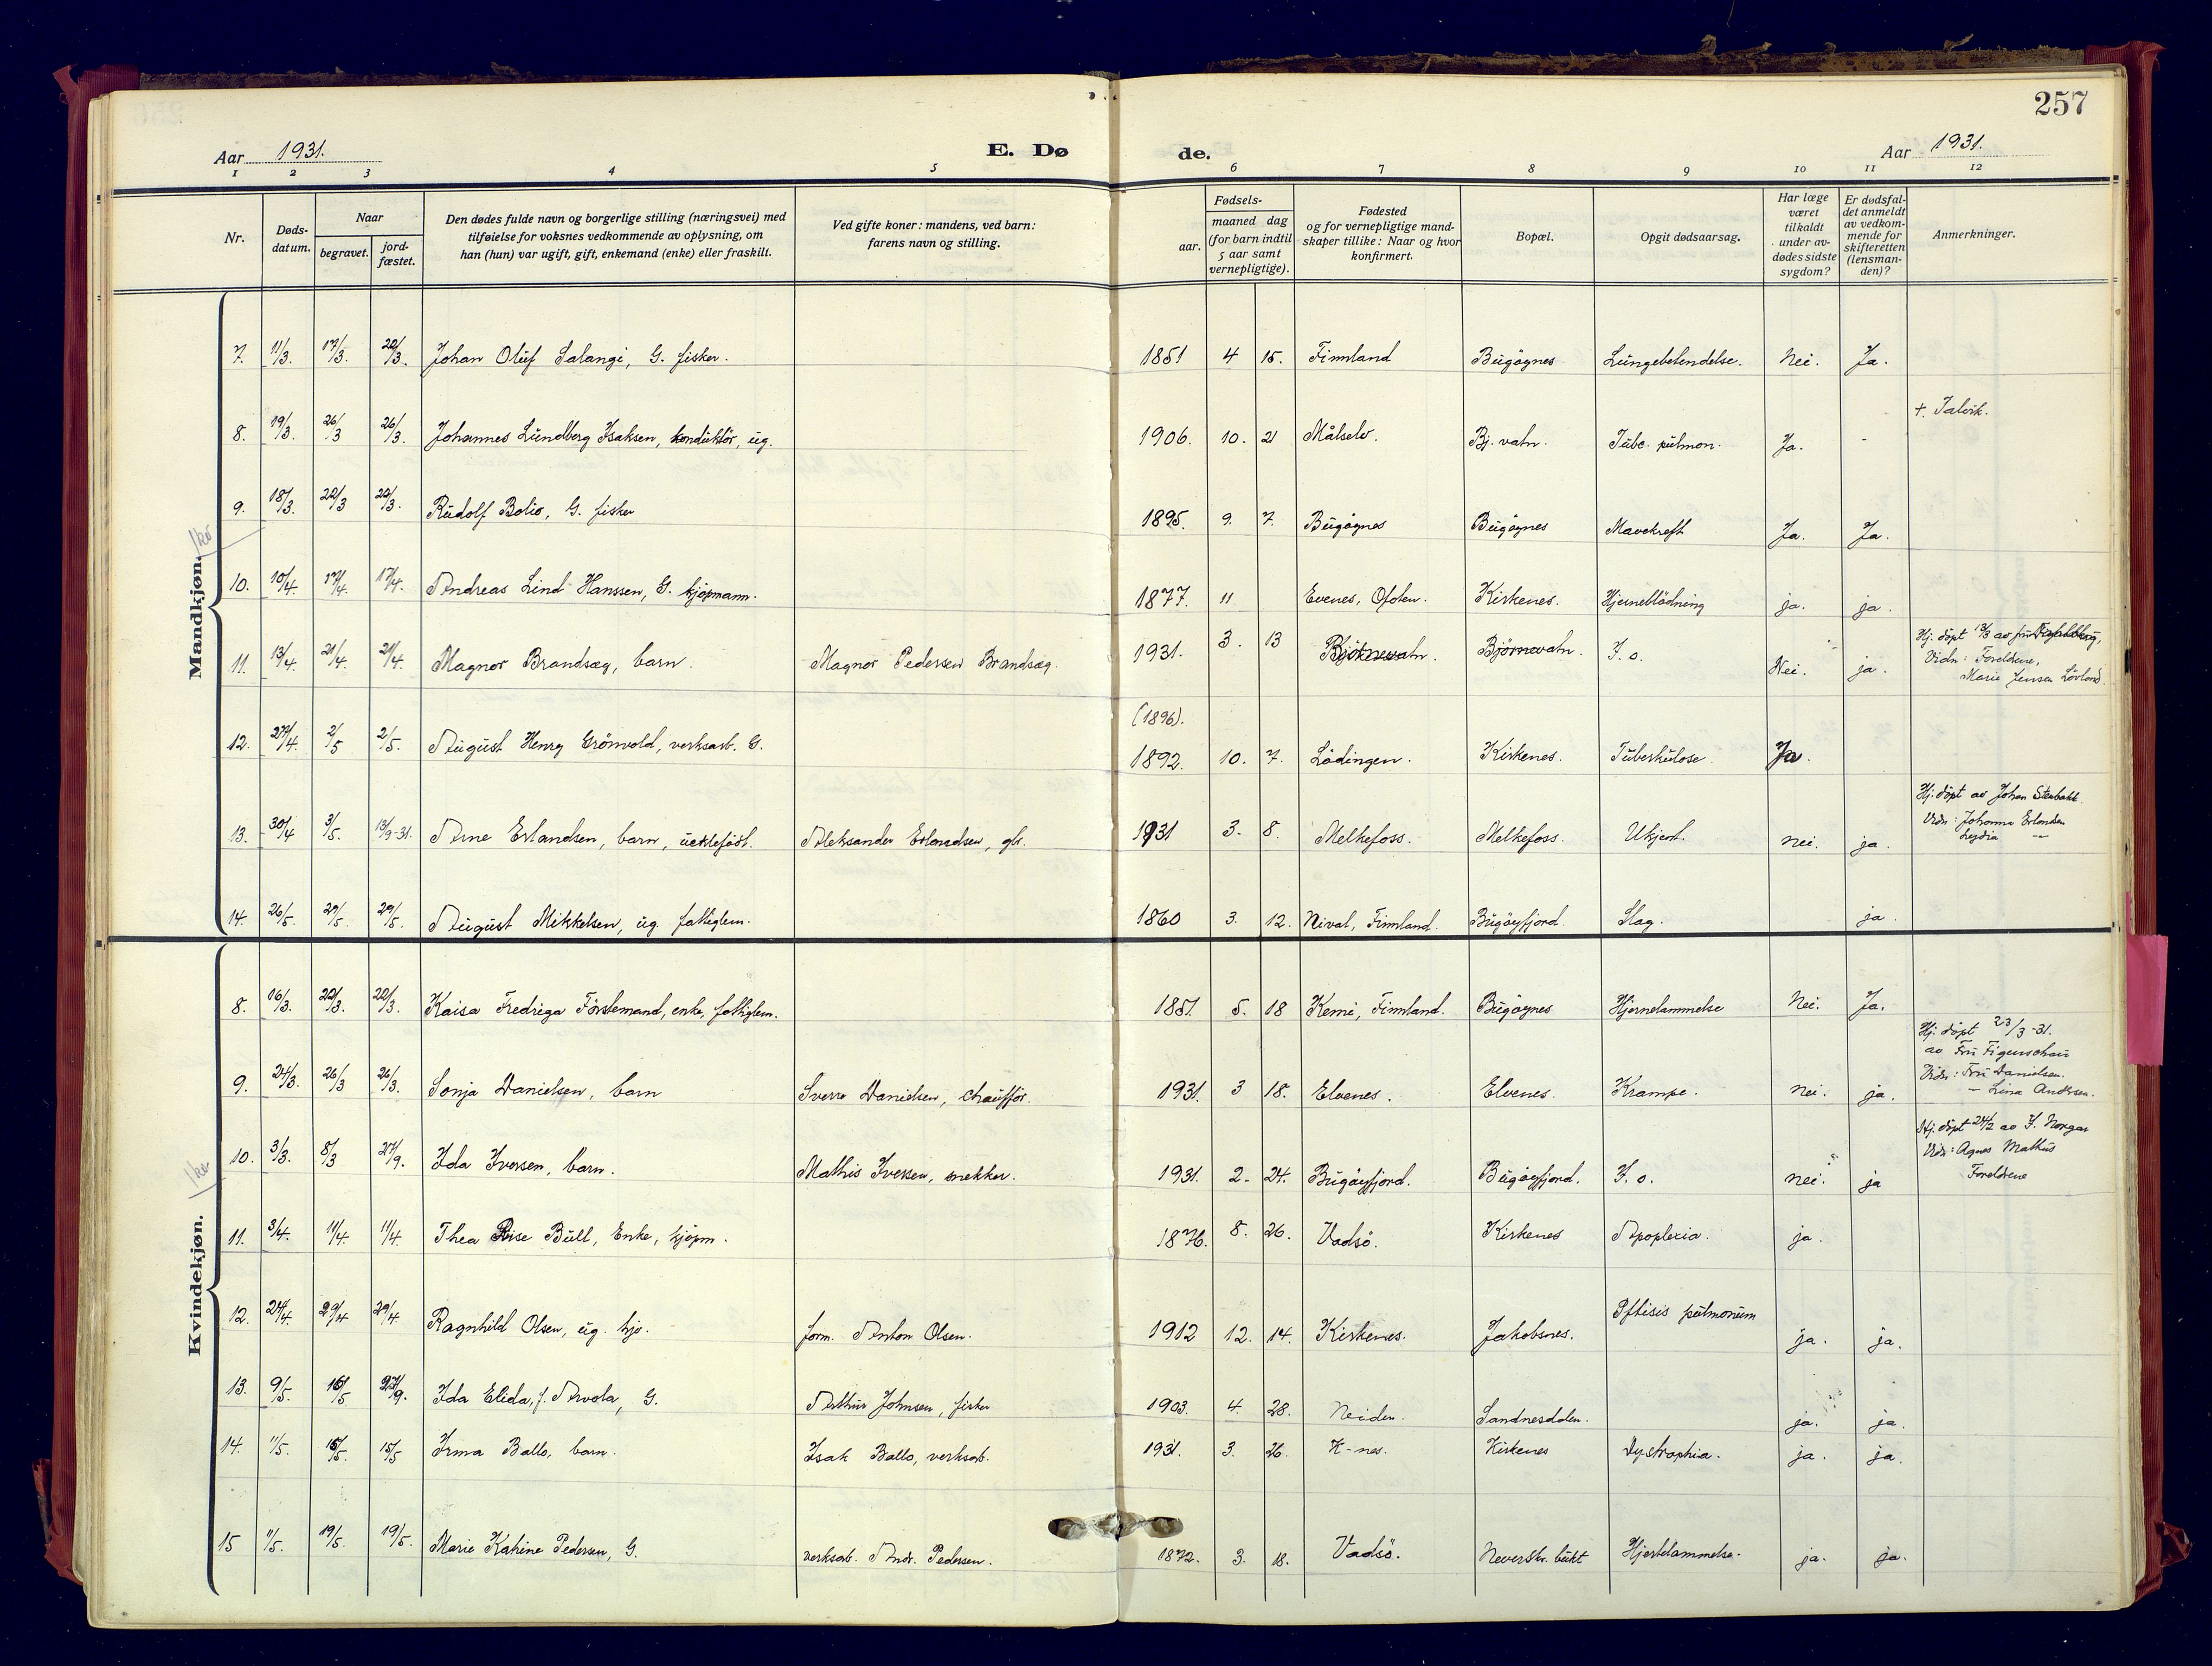 257
Aar 1931. E. Dø de. Aar 1931.
1 2 3 4 5 6 7 8 9 10 11 12
Nr. Døds-datum. Naar begravet. jord-fæstet. Den dødes fulde navn og borgerlige stilling (næringsvei) med tilføielse for voksnes vedkommende av oplysning, om han (hun) var ugift, gift, enkemand (enke) eller fraskilt. Ved gifte koner: mandens, ved barn: farens navn og stilling. Fødsels- aar. maaned dag (for barn indtil 5 aar samt vernepligtige). Fødested og for vernepligtige mandskaper tillike: Naar og hvor konfirmert. Bopæl. Opgit dødsaarsag. Har læge været tilkaldt under avdødes sidste sygdom? Er dødsfaldet anmeldt av vedkommende for skifteretten (lensmanden)? Anmerkninger.
Mandkjøn.
7. 11/3. 17/3. 22/3. Johan Oluf Salangi, G. fisker. 1851 4 15. Finnland Bugöynes Lungebetendelse. Nei. Ja.
8. 19/3. 26/3 26/3. Johannes Lundberg Isaksen, konduktör, ug. 1906. 10. 21 Målselv. Bj. vatn. Tube. pulmon. Ja. - + Talvik.
9. 18/3. 22/3 22/3. Rudolf Bolio, G. fisker 1895. 9. 7. Bugöynes Bugöynes Mavekreft Ja. Ja.
10. 10/4. 17/4. 17/4. Andreas Lind Hanssen, G. kjøpmann. 1877. 11 Evenes, Ofoten. Kirkenes. Hjerneblödning ja. ja.
11. 13/4. 21/4. 21/4. Magnor Brandsæg, barn. Magnor Pedersen Brandsæg. 1931. 3. 13 Björnevatn. Björnevatn. I. o. Nei. ja. Hj. döpt 13/3 av fru
Vidn: Foreldrene,
Marie Jensen Lövland.
12. 27/4. 2/5 2/5. August Henry Grönvold, verksarb. G. (1896). 1892. 10. 7. Lödingen. Kirkenes. Tuberkulose. Ja.
13. 30/4 3/5. 13/9-31. Arne Erlandsen, barn, uekteföd. Aleksander Erlandsen, gbr. 1931 3. 8. Melkefoss. Melkefoss. Ukjent. nei. ja. Hj. döpt av Johan Stenbakk.
Vidn: Johanna Erlandsen
Lydia —
14. 26/5. 29/5. 29/5. August Mikkelsen, ug. fattiglem. 1860 3. 12. Nival, Finnland. Bugöyfjord. Slag. ja.
Kvindekjøn.
8. 16/3. 22/3. 22/3. Kaisa Fredriga Förstemand, enke, fattiglem. 1851. 5. 18 Kemi, Finnland. Bugöynes Hjernelammelse Nei. Ja.
9. 24/3. 26/3 26/3. Sonja Danielsen, barn Sverre Danielsen, chauffør. 1931. 3 18. Elvenes. Elvenes. Krampe. nei. ja. Hj. döpt 23/3-31.
av Fru Figenschau
Vidn: Fru Danielsen.
— Lina Andersen.
10. 3/3. 8/3 27/9. Ida Iversen, barn. Mathis Iversen, snekker. 1931. 2. 24. Bugöyfjord. Bugöyfjord. I. o. nei. ja Hj. döpt 24/2 av I. Norgan
Vidn: Agnes Mathus
Foreldrene
11. 3/4. 11/4. 11/4. Thea Rise Bull, Enke, kjøpm. 1876. 8. 26. Vadsö. Kirkenes Apoplexia. ja.
12. 24/4. 29/4 29/4 Ragnhild Olsen, ug. hjo. form. Anton Olsen. 1912 12. 14. Kirkenes. Jakobsnes. Pftisis pulmonum ja. ja.
13. 9/5. 16/5 27/9. Ida Elida, f. Arvola, G. Arthur Johnsen, fisker 1903. 4. 28. Neiden. Sandnesdalen. ja. ja.
14. 11/5. 15/5. 15/5 Irma Ballo, barn. Isak Ballo, verksarb. 1931. 3. 26. K-nes. Kirkenes Dystrophia. ja. ja.
15 11/5. 19/5. 19/5. Marie Katrine Pedersen, G. verksarb. Andr. Pedersen. 1872. 3. 18. Vadsö. Neverskr. bukt Hjertelammelse. ja. ja.